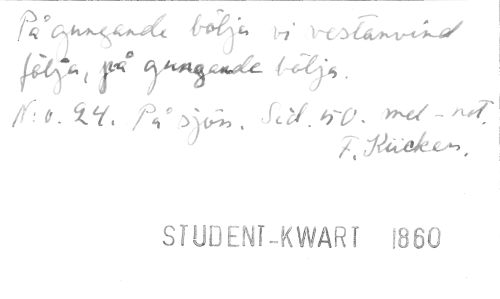 På gungande bölja vi vestanvind
följa, på gungande bölja.
N:o. 24. På sjön. Sid. 50. med-not.
F. Kücken.
STUDENT-KWART 1860